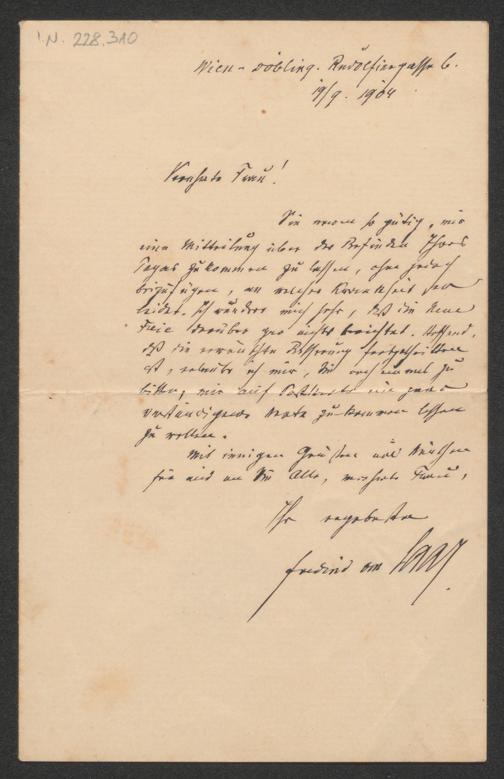 I.N. 228.310
Wien-Döbling. Rudolfinergasse 6.
19/9. 1904.
Verehrte Frau!
Sie waren so gütig, mir
eine Mitteilung über das Befinden Ihres
Papas zukommen zu lassen, ohne jedoch
beizufügen, an welcher Krankheit er
leidet. Ich wundere mich sehr, daß die Neue
Freie darüber gar nichts berichtet. Hoffend,
daß die erwünschte Besserung fortgeschritten
ist, erlaube ich mir, Sie noch einmal zu
bitten, mir auf Postkarte ein paar
verständigende Worte zukommen lassen
zu wollen.
Mit innigen Grüßen und Wünschen
für und an Sie Alle, verehrte Frau,
Ihr ergebenster
Ferdinand von Saar